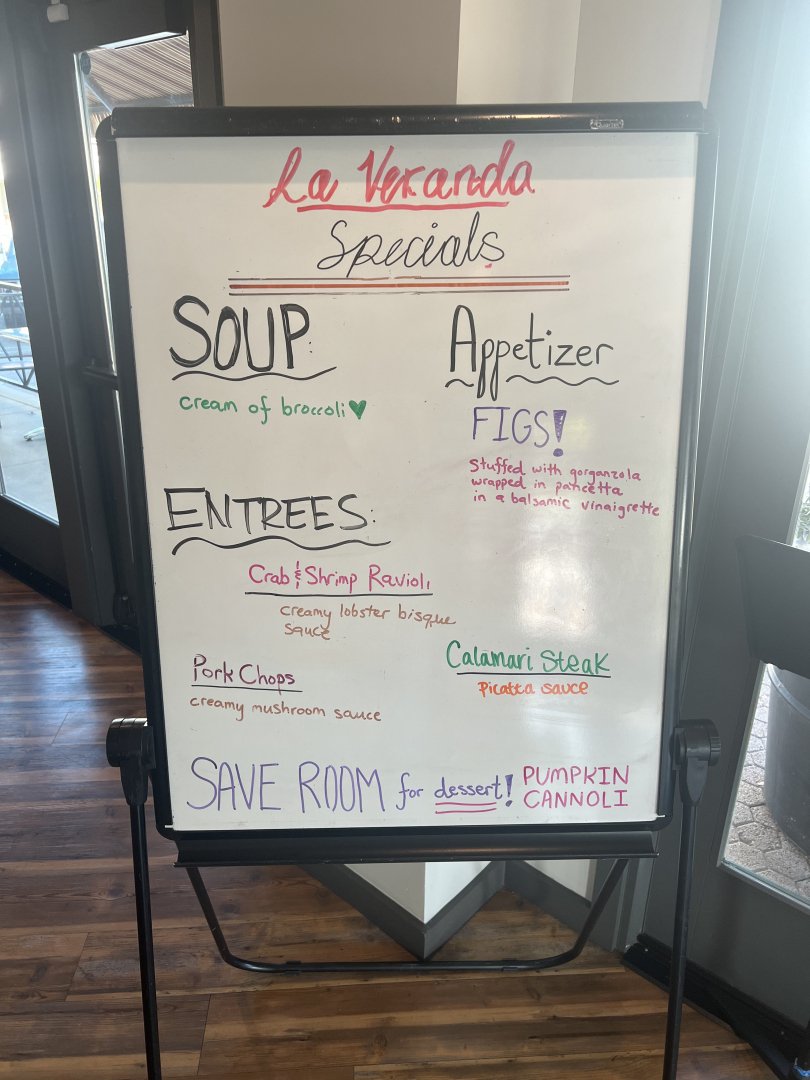 La Veranda
Specials
SOUP:
cream of broccoli
Appetizer
FIGS!
Stuffed with gorganzola
wrapped in pancetta
in a balsamic vinaigrette
ENTREES:
Crab & Shrimp Ravioli
creamy lobster bisque
sauce
Pork Chops
creamy mushroom sauce
Calamari Steak
Picatta sauce
SAVE ROOM for dessert! PUMPKIN
CANNOLI